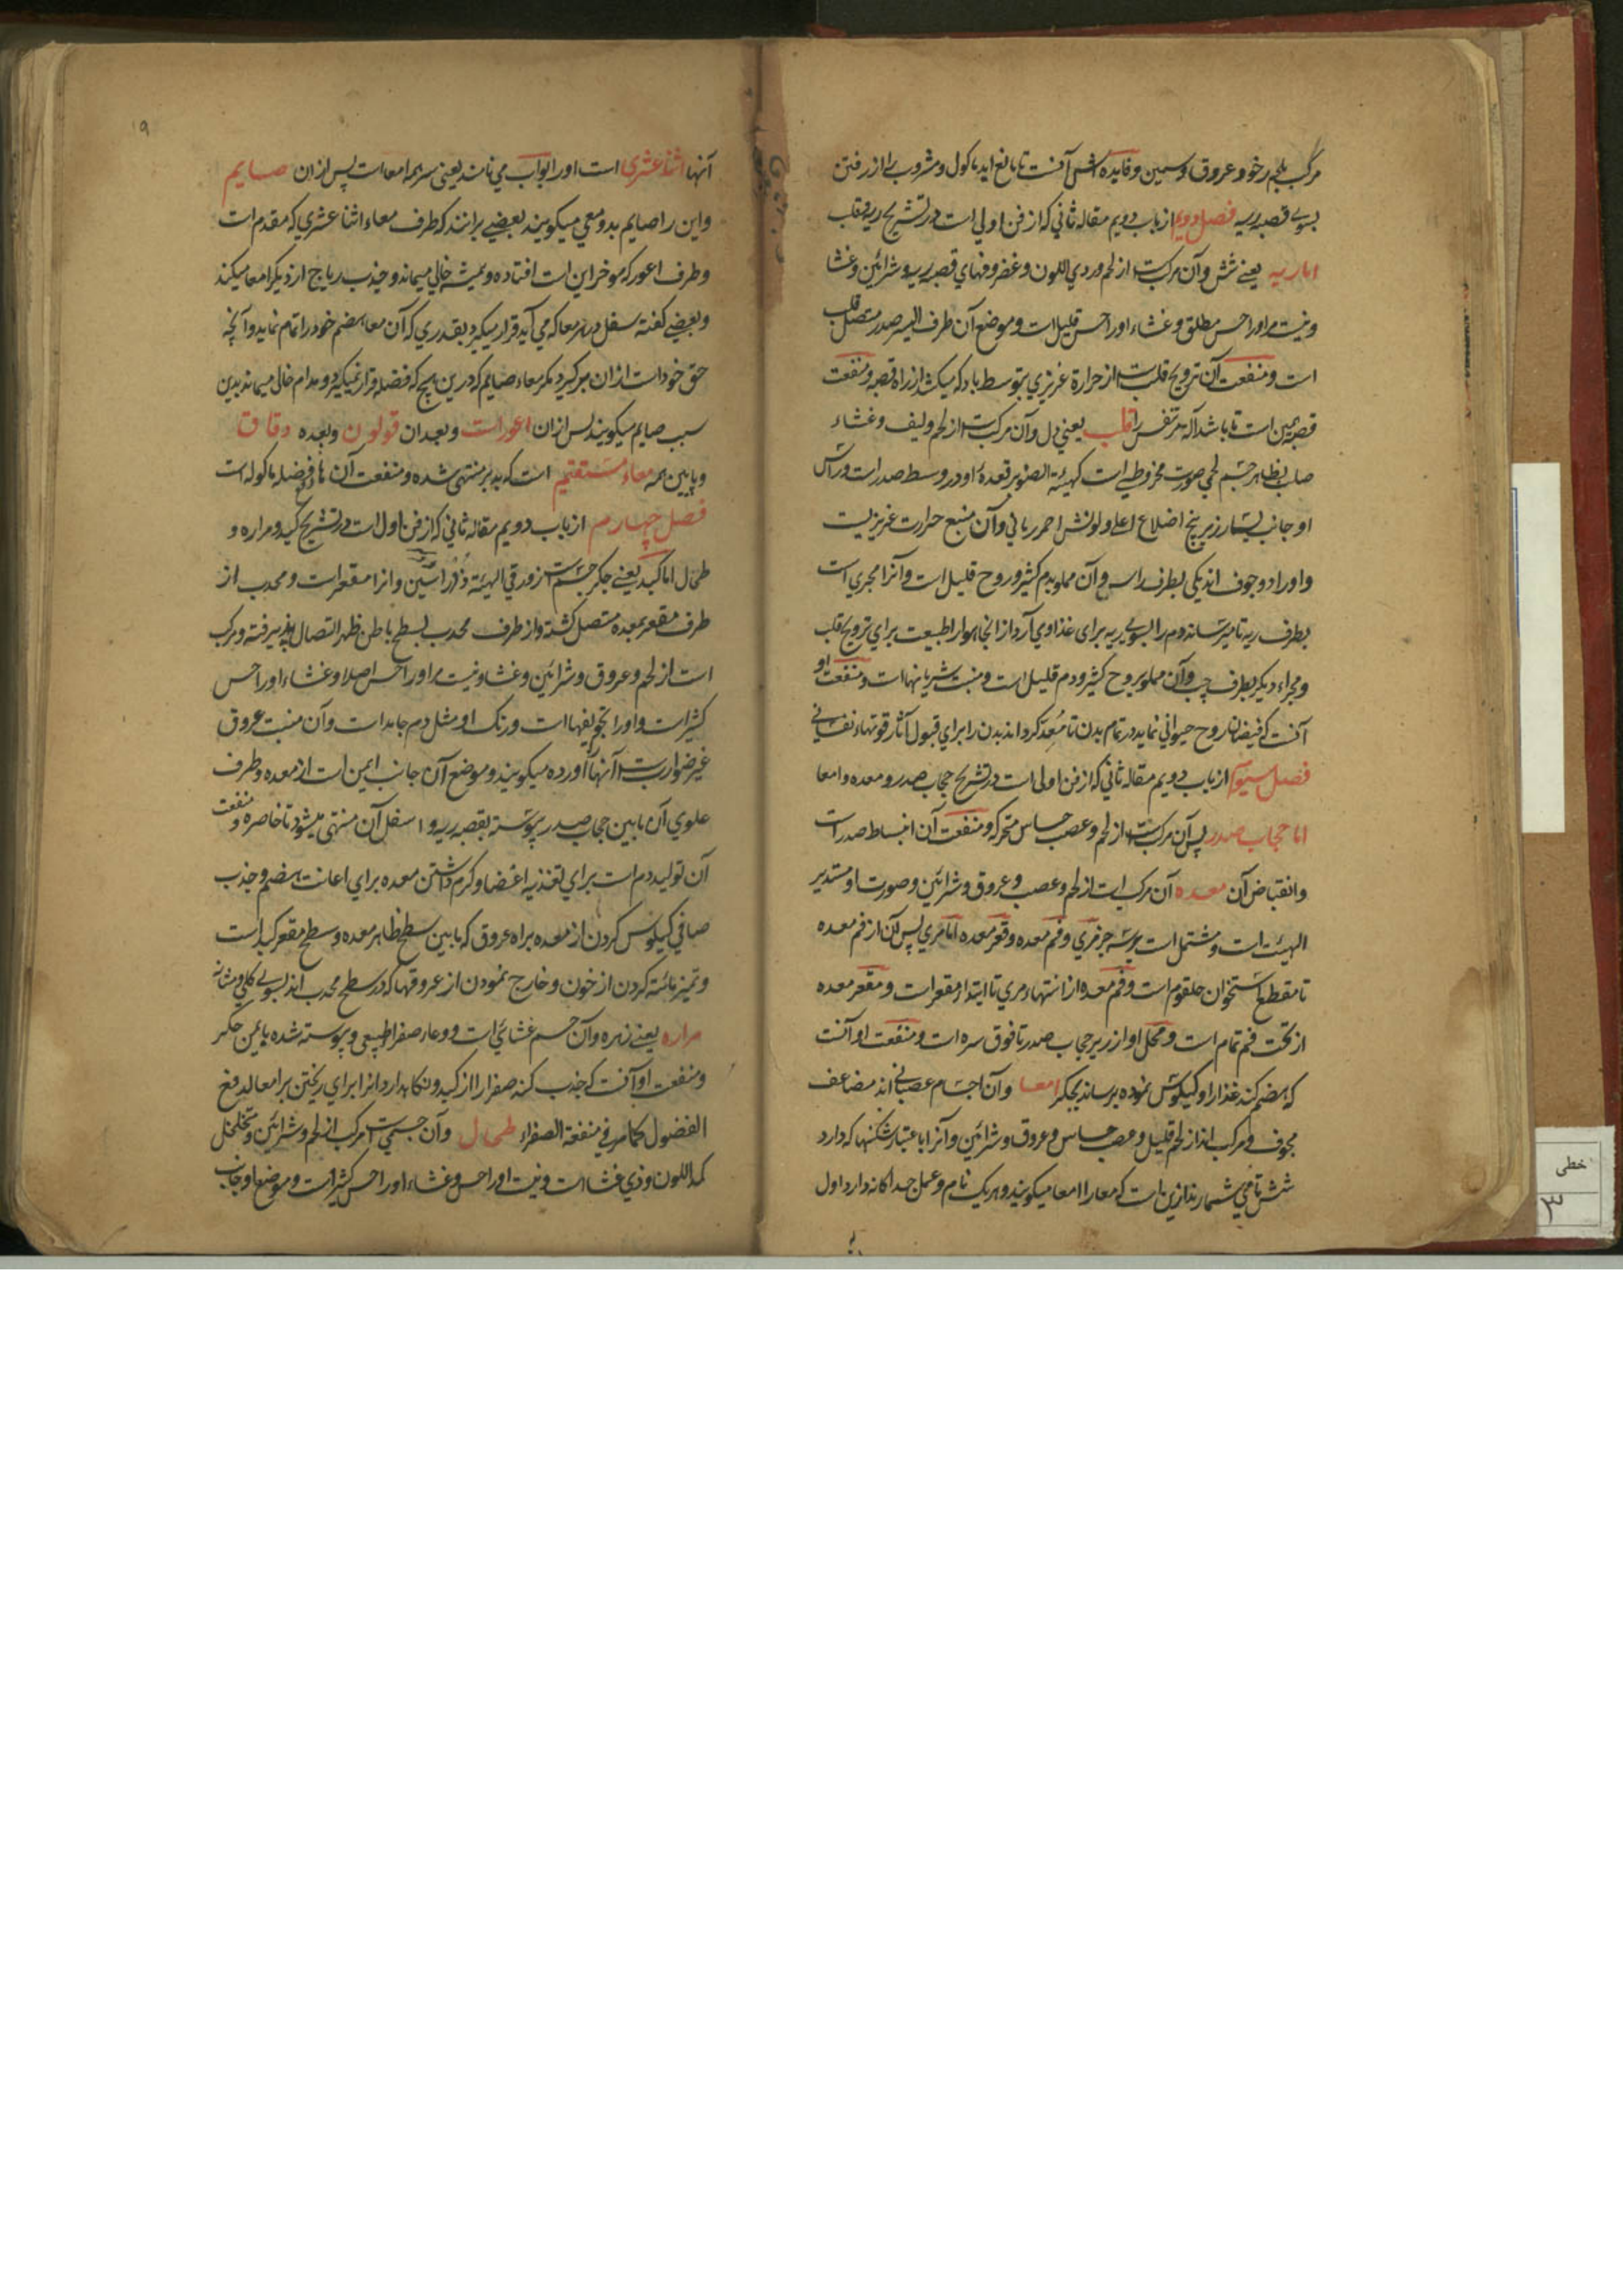 مرکب بلحم رخو و عروق و سمین و فایده اش آنست تا مانع اید ماکول و مشروب را از رفتن
بسوی قصبه ریه فصل دویم از باب دویم مقاله ثانی که از فن اولی است در تشریح ریه و قلب
اما ریه یعنی شش و آن مرکبست از لحم وردی اللون و غضروفهای قصبه ریه و شرائین و غشا
و نیست مر اورا حس مطلق و غشاء اورا حس قلیل است و موضع آن طرف الیسر صدر متصل قلب
است و منفعت آن ترویح قلبست از حرارة غریزی بتوسط باد که میکشد از راه قصبه و منفعت
قصبه همین است تا باشد آله مر تنفس را قلب یعنی دل و آن مرکبست از لحم و لیف و غشاء
صلب بظاهر جسم لحمی صورت مخروطی است کهیئة الصنوبر قعده او در وسط صدر است و راس
او جانب یسار زیر پنج اضلاع اعلی و لونش احمر رمانی و آن منبع حرارت غریزیست
و اورا دو جوف اند یکی بطرف راس و آن مملو بدم کثیر و روح قلیل است و آنرا مجری است
بطرف ریه تا میرساند دم را بسوی ریه برای غذا و می آرد از انجا هوا را طبیعت برای ترویح قلب
و مجراء دیگر بطرف چپ و آن مملو بروح کثیر و دم قلیل است و منبت شریانهاست و منفعت او
آنست که فیضان روح حیوانی نماید در تمام بدن تا مُعِد گرداند بدن را برای قبول آثار قوتهاء نفسانی
فصل سیوم از باب دویم مقاله ثانی که از فن اولی است در تشریح حجاب صدر و معده و امعا
اما حجاب صدر پس آن مرکبست از لحم و عصب حساس متحرکه و منفعت آن انبساط صدر است
و انقباض آن معده آن مرکب است از لحم و عصب و عروق و شرائین و صورت او مستدیر
الهیئت است و مشتمل است بر سه جز مری و فم معده و قعر معده اما مری پس آن از فم معده
تا مقطع استخوان حلقوم است و فم معده از انتهاء مری تا ابتداء مقعر است و مقعر معده
از تحت فم تمام است و محل او از زیر حجاب صدر تا فوق سره است و منفعت او آنست
که هضم کند غذا را و کیلوس نموده برساند بجگر امعا و آن اجسام عصبانی اند مضاعف
مجوف و مرکب اند از لحم قلیل و عصب حساس و عروق و شرائین و آنرا باعتبار شکنها که دارد
شش تا می شمارند ازین است که معا را امعا میگویند و هر یک نام و عمل جداگانه دارد اول
۱۹
آنها اثنا عشری است و اورا بواب می نامند یعنی سر همه امعاست پس از ان صایم
و این را صایم بدو معنی میگویند بعضی برانند که طرف معاء اثنا عشری که مقدم است
و طرف اعور که موخر این است افتاده و همیشه خالی میماند و جذب ریاح از دیگر امعا میکند
و بعضی گفته سفل در هر معا که می آید قرار میگیرد بقدری که آن معا هضم خود را تمام نماید و آنچه
حق خود است از ان میگیرد مگر معاء صایم که درین هیچ که فضله قرار نمیگیرد و مدام خالی میماند بدین
سبب صایم میگویند پس از ان اعور است و بعد ان قولون و بعده دقاق
و پایین همه معاء مستقیم است که بدبر منتهی شده و منفعت آن ها دفع فضله ماکوله است
فصل چهارم از باب دویم مقاله ثانی که از فن اول است در تشریح کبد و مراره و
طحال اما کبد یعنی جگر جسمیست زورقی الهیئة ذو راسین و انرا مقعر است و محدب از
طرف مقعر بمعده متصل گشته و از طرف محدب بسطح باطن ظهر التصال پذیرفته و مرکب
است از لحم و عروق و شرائین و غشا و نیست مر اورا حس اصلا و غشاء اورا حس
کثیر است و اورا تجویفهاست و رنگ او مثل دم جامد است و آن منبت عروق
غیر ضواربست آنها را اورده میگویند و موضع آن جانب ایمن است از معده و طرف
علوی آن مابین حجاب صدر پیوسته بقصبه ریه و اسفل آن منتهی میشود تا خاصره و منفعت
آن تولید دم است برای تغذیه اعضا و گرم داشتن معده برای اعانت هضم و جذب
صافی کیلوس کردن از معده براه عروق که مابین سطح ظاهر معده و سطح مقعر کبد است
و تمیز مائیة کردن از خون و خارج نمودن از عروقها که در سطح محدب اند بسوی کلی و مثانه
مراره یعنی زهره و آن جسم غشائی است و وعاء صفرا طبیعی و پیوسته شده بایمن جگر
و منفعت او آنست که جذب کند صفرا را از کبد و نگاهدارد انرا برای ریختن بر امعا لدفع
الفضول کما مر فی منفعة الصفراء طحال و آن جسمیست مرکب از لحم و شرائین و متخلخل
کمد اللون و ذی غشاست و نیست اورا حس و غشاء اورا حس کثیر است و موضع او جانب
خطی
۳